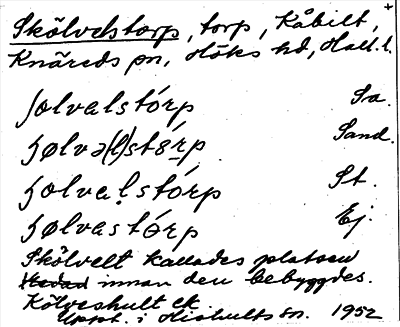 Skölvelstorp, torp, Kåbilt, +
Knäreds sn, Höks hd, Hall. l.
ʃølvalstórp Sa.
ʃølvə(l)stórp Sand.
ʃølvalstórp St.
ʃølvastórp Ej.
Skölvelt kallades platsen
innan den bebyggdes.
Kölveshult ek.
Uppt. i Hishults sn. 1952